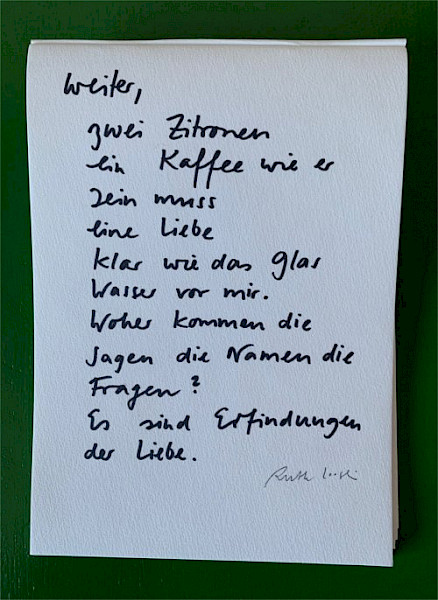 weiter,
zwei Zitronen
ein Kaffee wie er
sein muss
eine Liebe
klar wie das Glas
Wasser vor mir.
Woher kommen die
Sagen die Namen die
Fragen?
Es sind Erfindungen
der Liebe.
Ruth